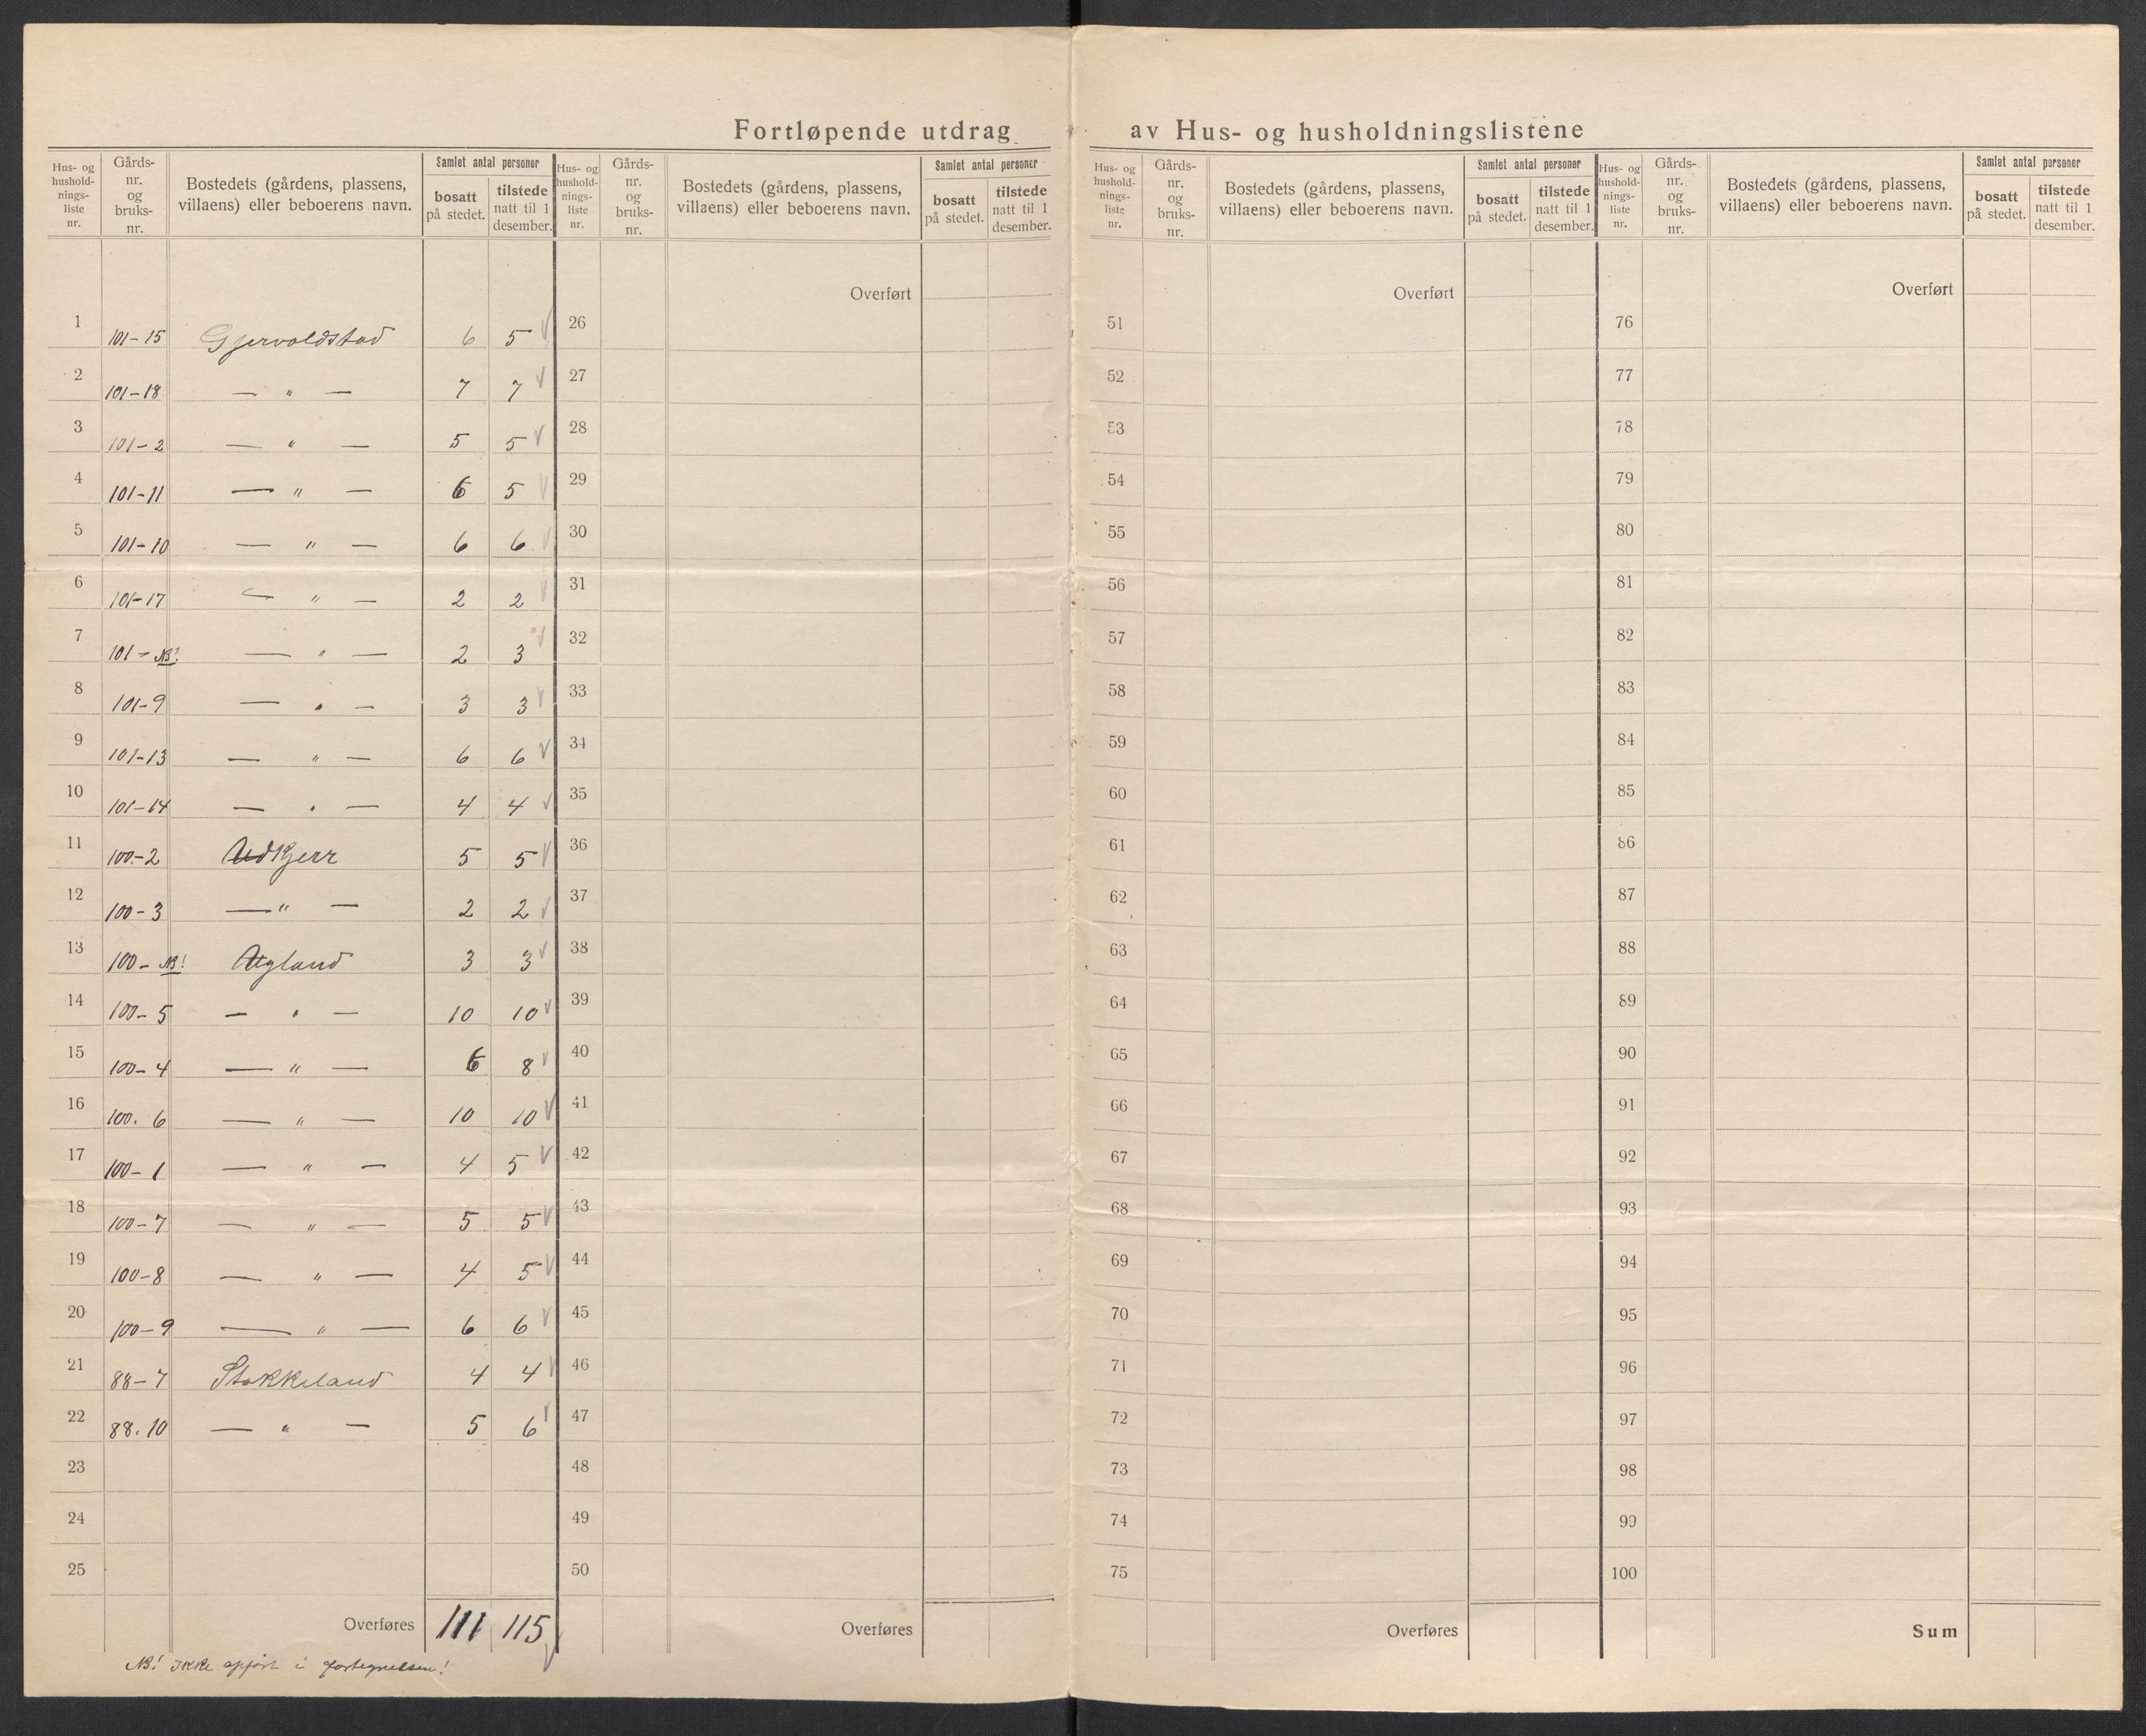 Fortløpende utdrag av Hus- og husholdningslistene
Hus- og hushold-nings-liste nr. Gårds-nr. og bruks-nr. Bostedets (gårdens, plassens, villaens) eller beboerens navn. Samlet antal personer bosatt på stedet. tilstede natt til 1 desember.
Hus- og hushold-nings-liste nr. Gårds-nr. og bruks-nr. Bostedets (gårdens, plassens, villaens) eller beboerens navn. Samlet antal personer bosatt på stedet. tilstede natt til 1 desember.
Hus- og hushold-nings-liste nr. Gårds-nr. og bruks-nr. Bostedets (gårdens, plassens, villaens) eller beboerens navn. Samlet antal personer bosatt på stedet. tilstede natt til 1 desember.
Hus- og hushold-nings-liste nr. Gårds-nr. og bruks-nr. Bostedets (gårdens, plassens, villaens) eller beboerens navn. Samlet antal personer bosatt på stedet. tilstede natt til 1 desember.
Overført Overført Overført
1 101-15 Gjervoldstad 6 5 26 51 76
2 101-18 — " — 7 7 27 52 77
3 101-2 — " — 5 5 28 53 78
4 101-11 — " — 6 5 29 54 79
5 101-10 — " — 6 6 30 55 80
6 101-17 — " — 2 2 31 56 81
7 101- NB! — " — 2 3 32 57 82
8 101-9 — " — 3 3 33 58 83
9 101-13 — " — 6 6 34 59 84
10 101-14 — " — 4 4 35 60 85
11 100-2 Udkjerr 5 5 36 61 86
12 100-3 — " — 2 2 37 62 87
13 100- NB! Augland 3 3 38 63 88
14 100-5 — " — 10 10 39 64 89
15 100-4 — " — 6 8 40 65 90
16 100.6 — " — 10 10 41 66 91
17 100-1 — " — 4 5 42 67 92
18 100-7 — " — 5 5 43 68 93
19 100-8 — " — 4 5 44 69 94
20 100-9 — " — 6 6 45 70 95
21 88-7 Stokkeland 4 4 46 71 96
22 88.10 — " — 5 6 47 72 97
23 48 73 98
24 49 74 99
25 50 75 100
Overføres 111 115 Overføres Overføres Sum
NB! Ikke opført i fortegnelsen!